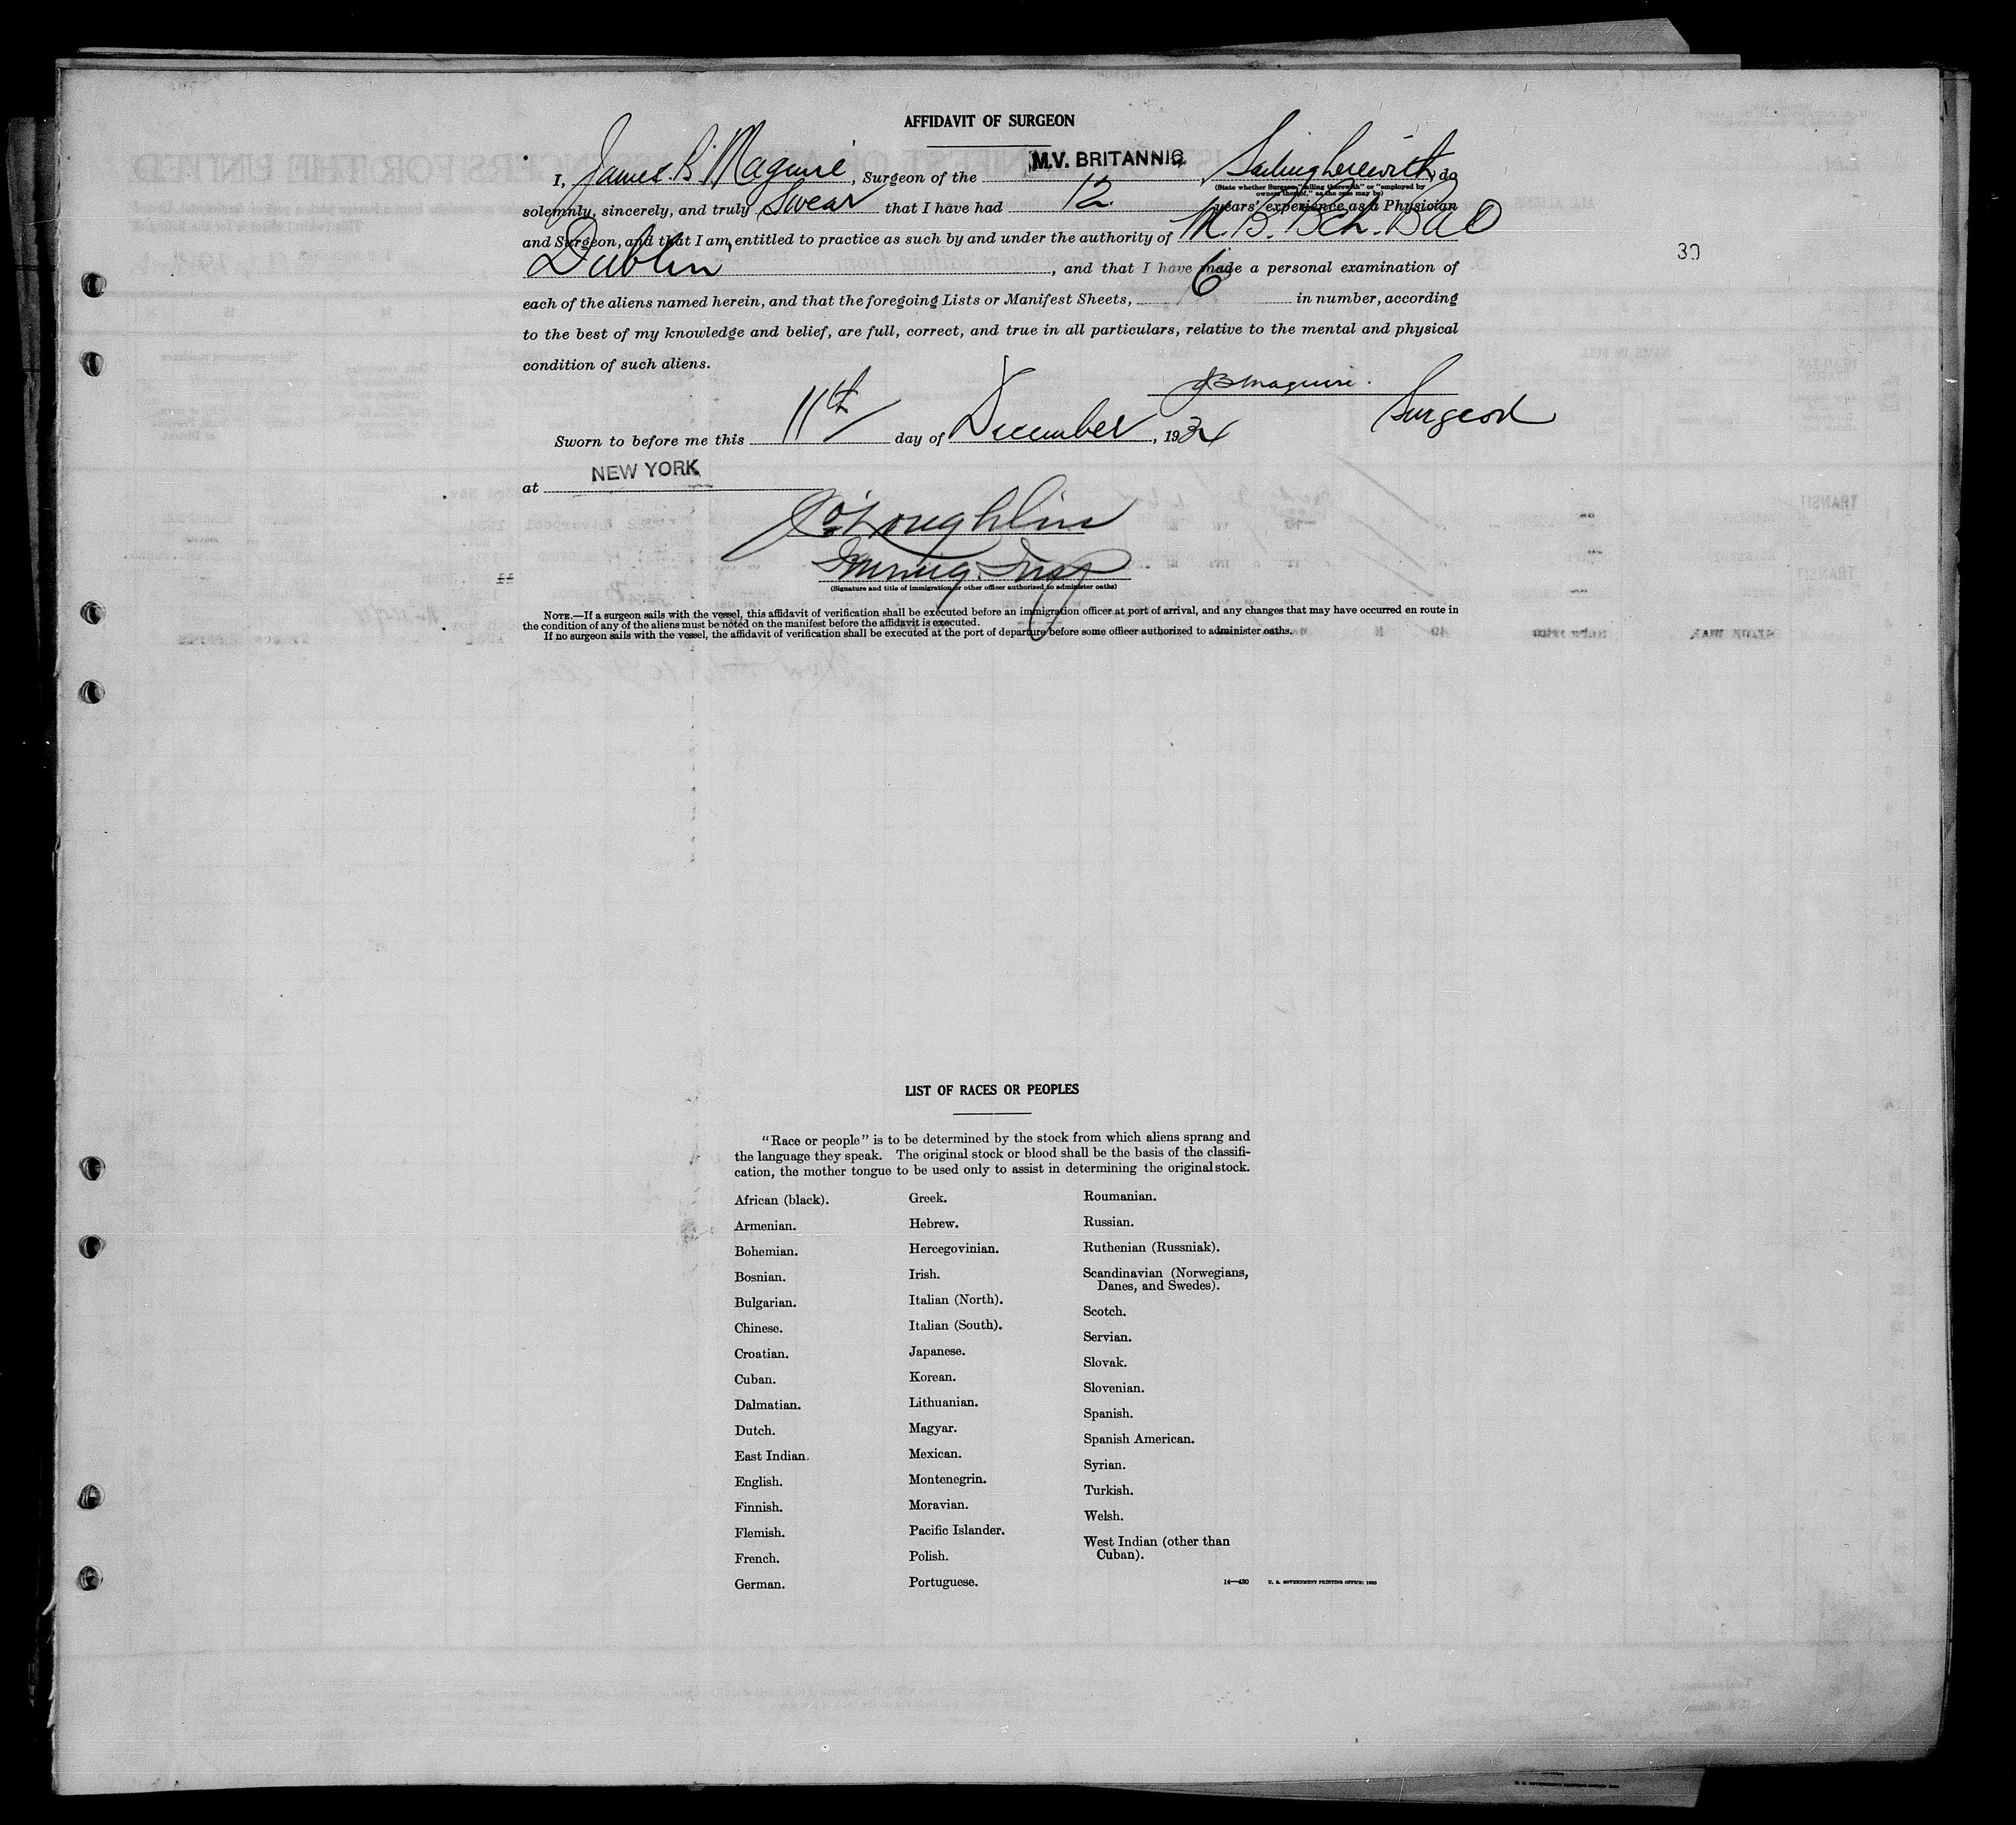 AFFIDAVIT OF SURGEON
I, James. B. Maguire, Surgeon of the M.V. BRITANNIC Sailing herewith, do
(State whether Surgeon "sailing therewith" or "employed by
owners thereof," as the case may be)
solemnly, sincerely, and truly Swear that I have had 12 years' experience as a Physician
and Surgeon, and that I am entitled to practice as such by and under the authority of M.B. Bch. BAO
Dublin, and that I have made a personal examination of
30
each of the aliens named herein, and that the foregoing Lists or Manifest Sheets, 6 in number, according
to the best of my knowledge and belief, are full, correct, and true in all particulars, relative to the mental and physical
condition of such aliens.
JB Maguire.
Surgeon
Sworn to before me this 11th day of December, 1934
at NEW YORK
J O'Loughlin
Immig. Insp
(Signature and title of immigration or other officer authorized to administer oaths)
NOTE.—If a surgeon sails with the vessel, this affidavit of verification shall be executed before an immigration officer at port of arrival, and any changes that may have occurred en route in
the condition of any of the aliens must be noted on the manifest before the affidavit is executed.
If no surgeon sails with the vessel, the affidavit of verification shall be executed at the port of departure before some officer authorized to administer oaths.
LIST OF RACES OR PEOPLES
"Race or people" is to be determined by the stock from which aliens sprang and
the language they speak. The original stock or blood shall be the basis of the classifi-
cation, the mother tongue to be used only to assist in determining the original stock.
African (black).
Armenian.
Bohemian.
Bosnian.
Bulgarian.
Chinese.
Croatian.
Cuban.
Dalmatian.
Dutch.
East Indian.
English.
Finnish.
Flemish.
French.
German.
Greek.
Hebrew.
Hercegovinian.
Irish.
Italian (North).
Italian (South).
Japanese.
Korean.
Lithuanian.
Magyar.
Mexican.
Montenegrin.
Moravian.
Pacific Islander.
Polish.
Portuguese.
Roumanian.
Russian.
Ruthenian (Russniak).
Scandinavian (Norwegians,
Danes, and Swedes).
Scotch.
Servian.
Slovak.
Slovenian.
Spanish.
Spanish American.
Syrian.
Turkish.
Welsh.
West Indian (other than
Cuban).
14—430 U. S. GOVERNMENT PRINTING OFFICE: 1933